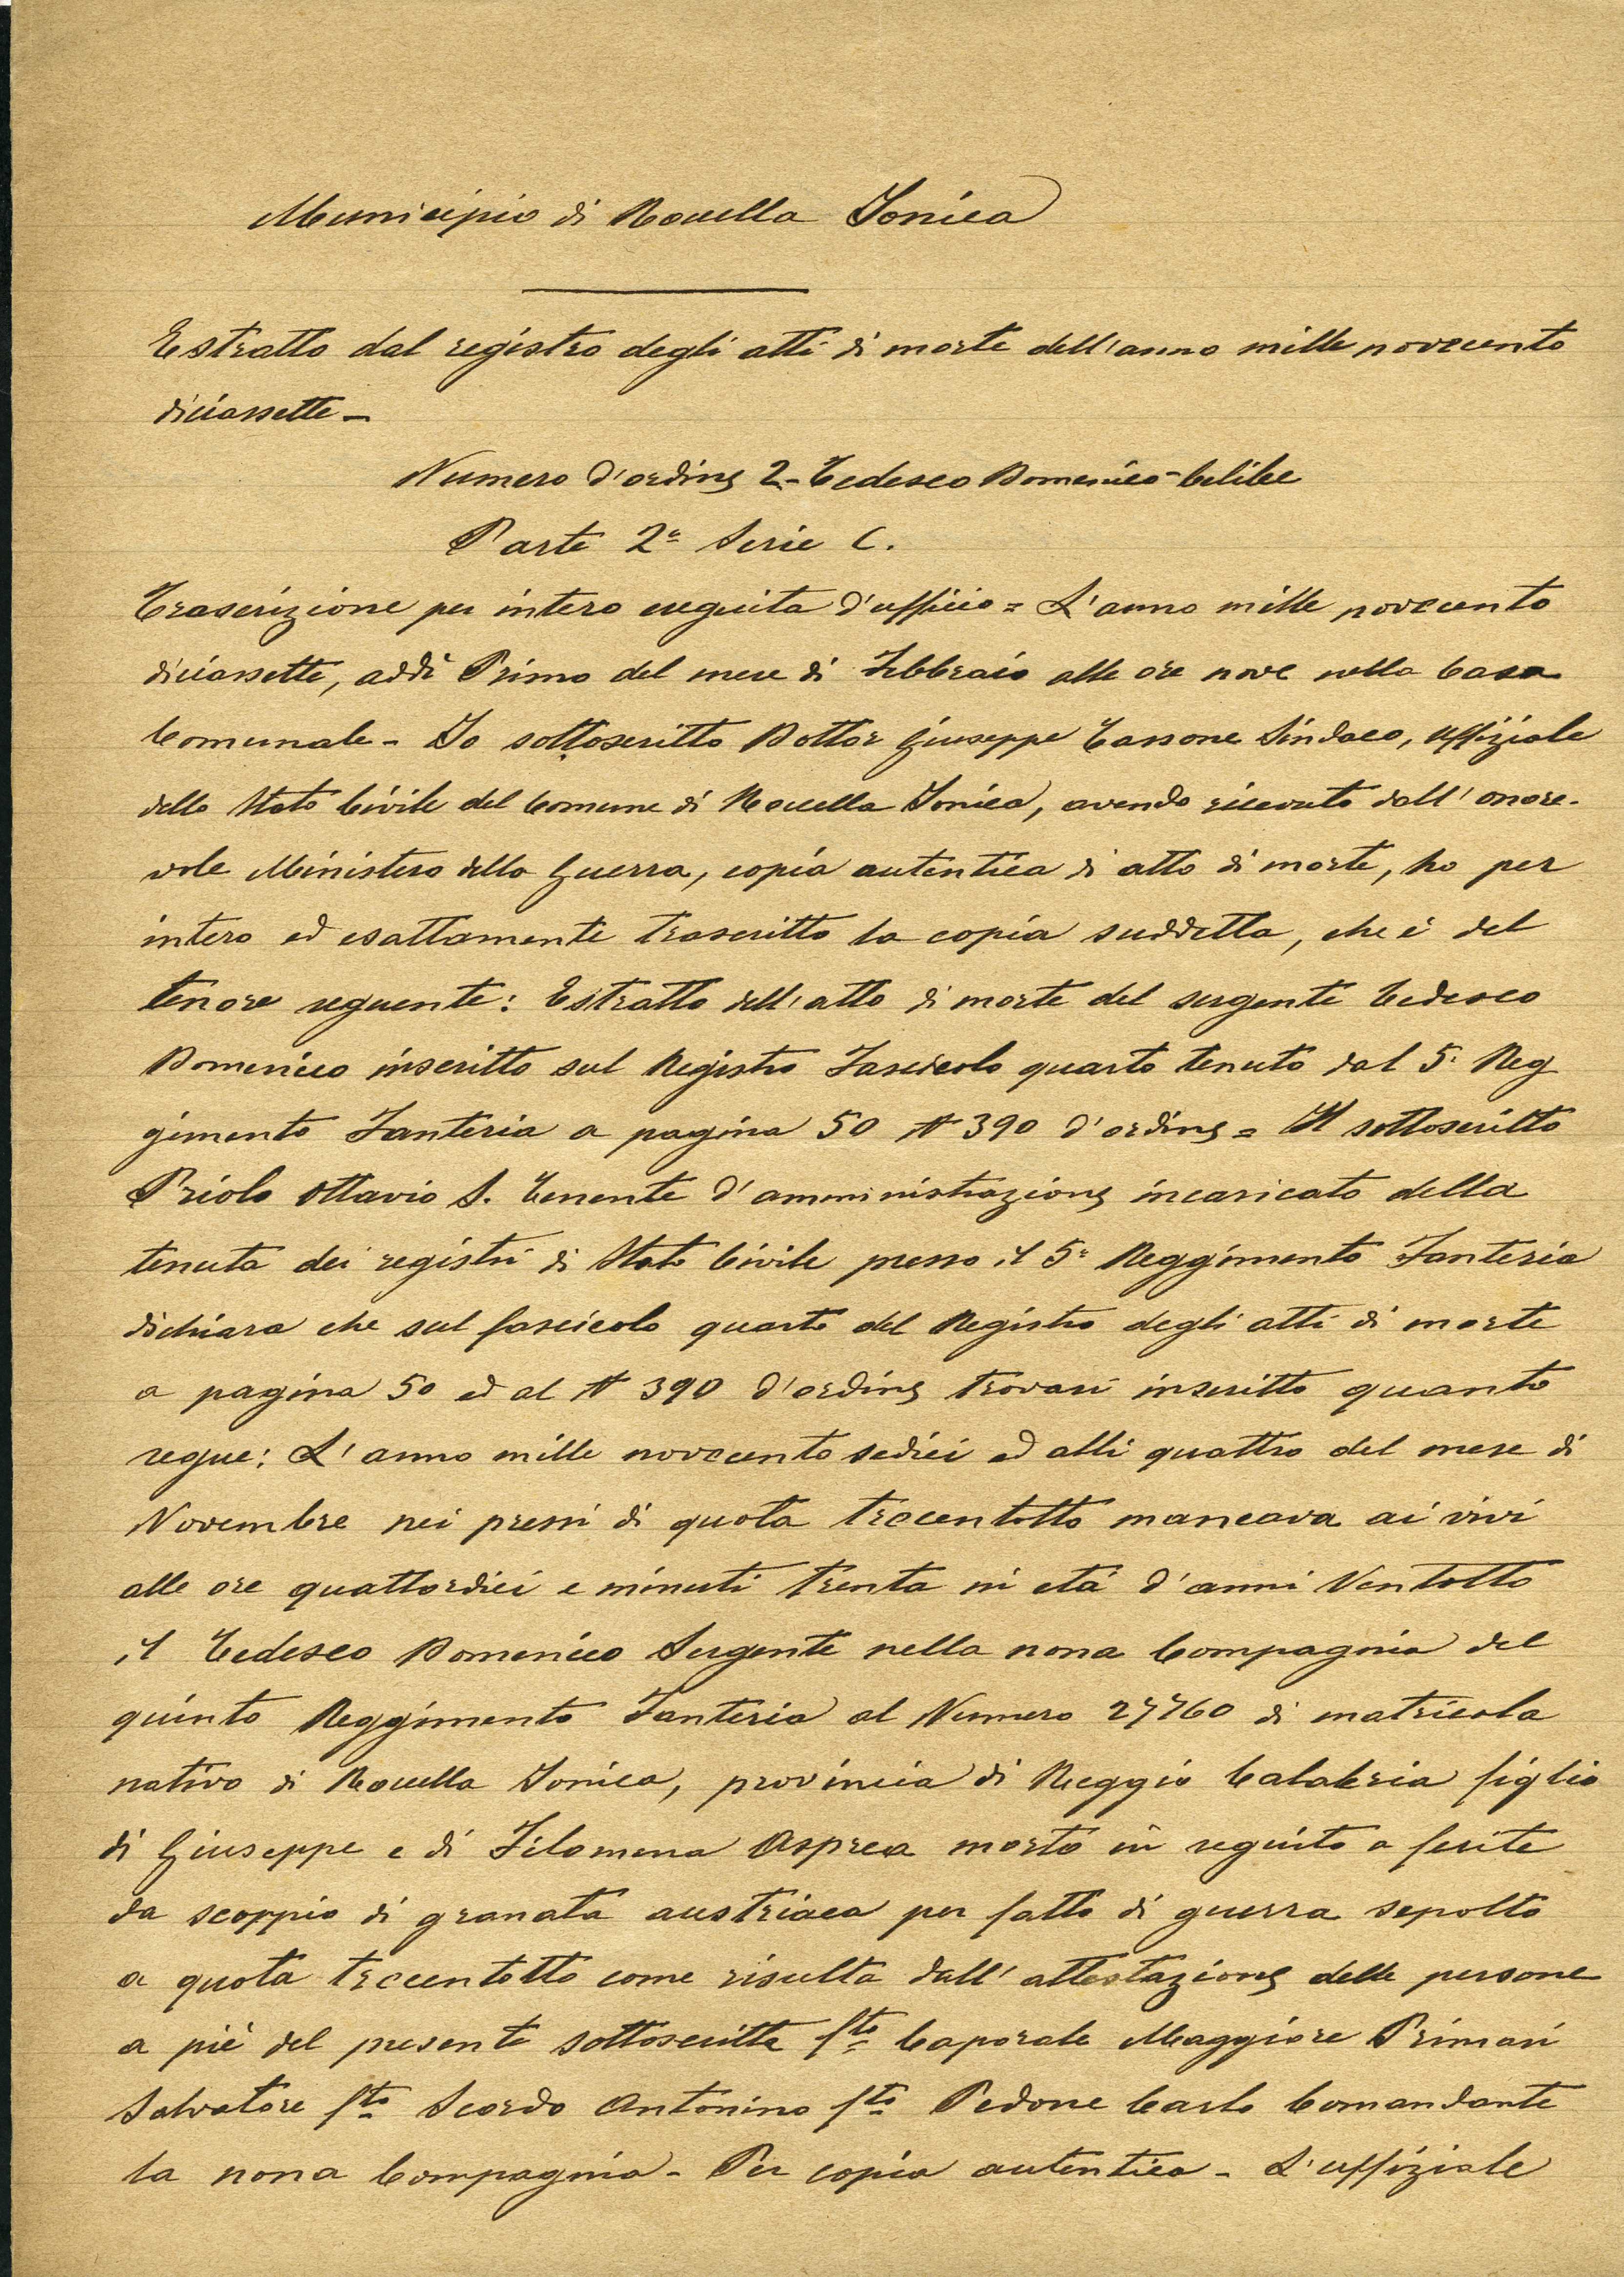 Municipio di Roccella Jonica
Estratto dal registro degli atti di morte dell'anno mille novecento
diciassette -
Numero d'ordine 2 - Tedesco Domenico - Celibe
Parte 2ª Serie C.
Trascrizione per intero eseguita d'ufficio = L'anno mille novecento
diciassette, addì Primo del mese di Febbraio alle ore nove nella Casa
Comunale - Io sottoscritto Dottor Giuseppe Cassone Sindaco, Uffiziale
dello Stato Civile del Comune di Roccella Jonica, avendo ricevuto dall'onore-
vole Ministero della Guerra, copia autentica di atto di morte, ho per
intero ed esattamente trascritto la copia suddetta, che è del
tenore seguente: Estratto dell'atto di morte del sergente Tedesco
Domenico inscritto sul Registro Fascicolo quarto tenuto dal 5º Reg
gimento Fanteria a pagina 50 Nº 390 d'ordine = Il sottoscritto
Priolo Ottavio S. Tenente d'amministrazione incaricato della
tenuta dei registri di Stato Civile presso il 5º Reggimento Fanteria
dichiara che sul fascicolo quarto del Registro degli atti di morte
a pagina 50 ed al Nº 390 d'ordine trovasi inscritto quanto
segue: L'anno mille novecento sedici ed alli quattro del mese di
Novembre nei pressi di quota trecentotto mancava ai vivi
alle ore quattordici e minuti trenta in età d'anni Ventotto
il Tedesco Domenico Sergente nella nona Compagnia del
quinto Reggimento Fanteria al Numero 27760 di matricola
nativo di Roccella Jonica, provincia di Reggio Calabria figlio
di Giuseppe e di Filomena Asprea morto in seguito a ferite
da scoppio di granata austriaca per fatto di guerra sepolto
a quota trecentotto come risulta dall'attestazione delle persone
a piè del presente sottoscritte fto Caporale Maggiore Primari
Salvatore fto Scordo Antonino fto Pedone Carlo Comandante
la nona Compagnia - Per copia autentica - L'uffiziale